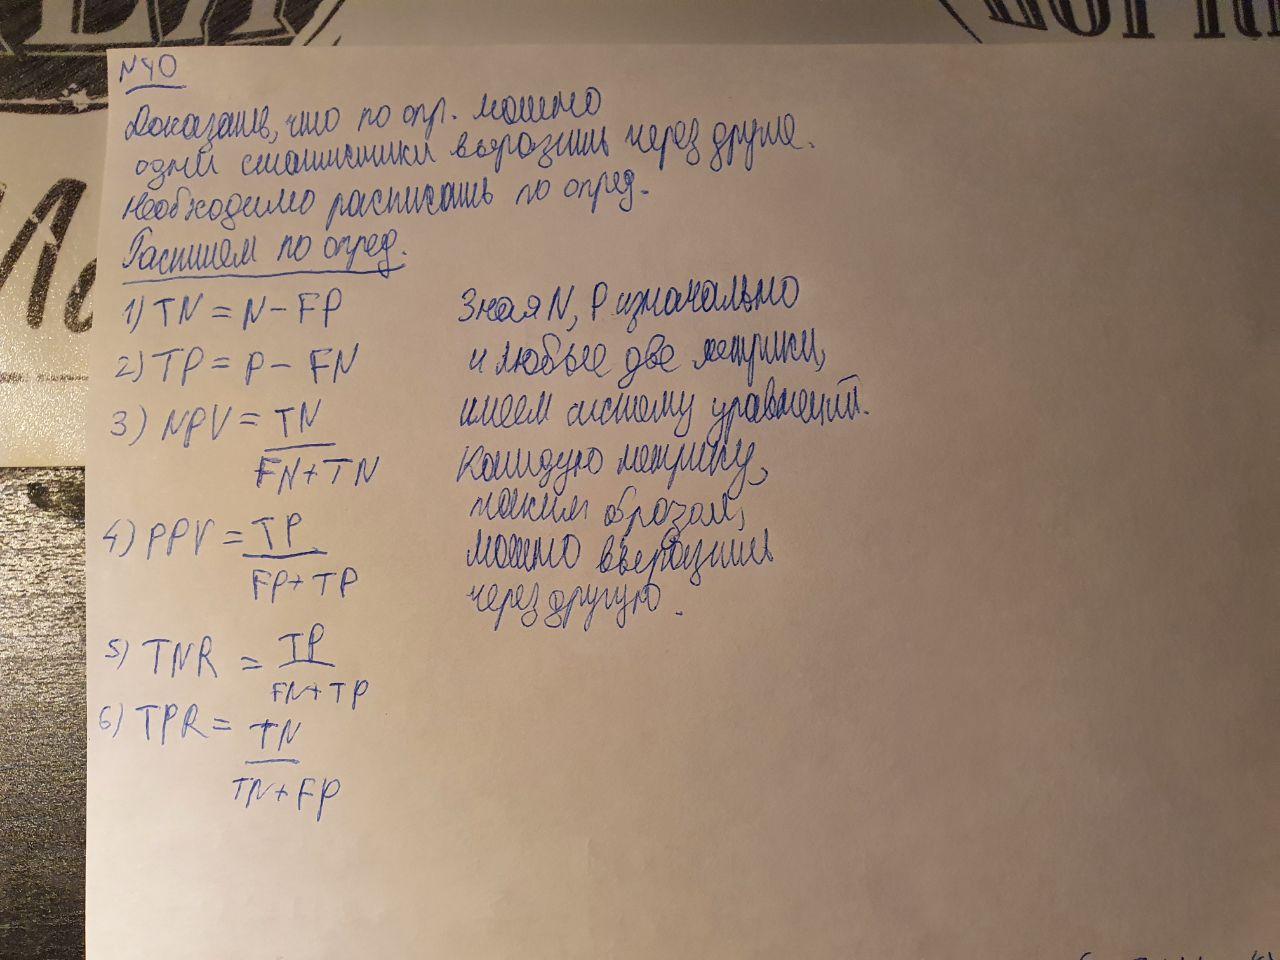 N40
Доказать, что по опр. можно
одни статистики выразить через другие.
Необходимо расписать по опред.
Распишем по опред.
1) TN = N - FP
2) TP = P - FN
3) NPV = TN
FN + TN
4) PPV = TP
FP + TP
5) TNR = TP
FN + TP
6) TPR = TN
TN + FP
Зная N, P изначально
и любые две метрики,
имеем систему уравнений.
Каждую метрику,
таким образом,
можно выразить
через другую.